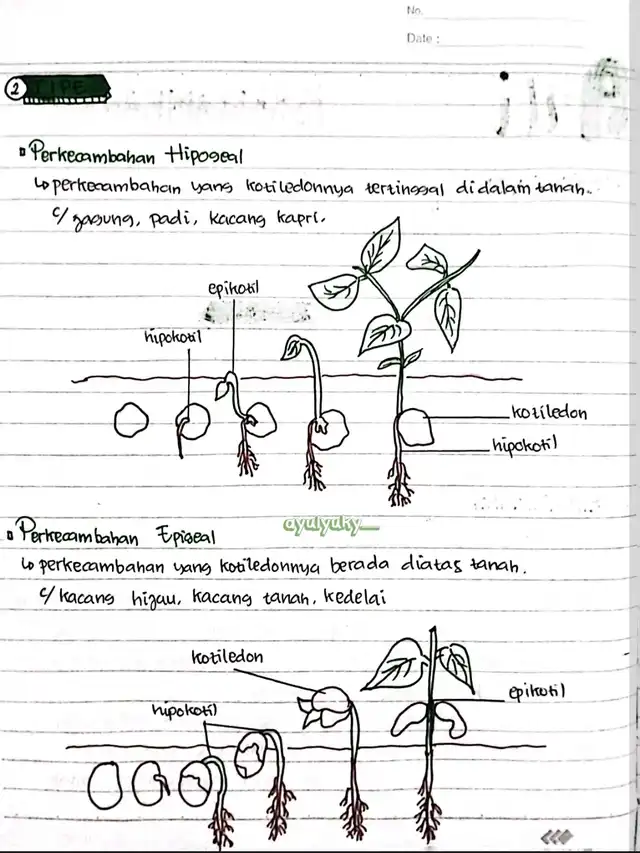 No.
Date :
2 TIPE
Perkecambahan Hipogeal
↳ perkecambahan yang kotiledonnya tertinggal didalam tanah.
c/ jagung, padi, kacang kapri.
epikotil
hipokotil
kotiledon
hipokotil
ayulyuky__
Perkecambahan Epigeal
↳ perkecambahan yang kotiledonnya berada diatas tanah.
c/ kacang hijau, kacang tanah, kedelai
kotiledon
epikotil
hipokotil